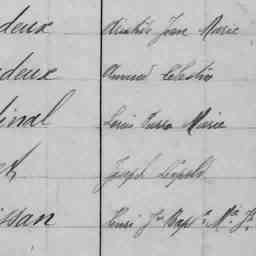 deux Aristide Jean Marie
deux Armand Célestin
inal Louis Pierre Marie
et Joseph Léopold
issan Henri Jn Bapte Mie Jh